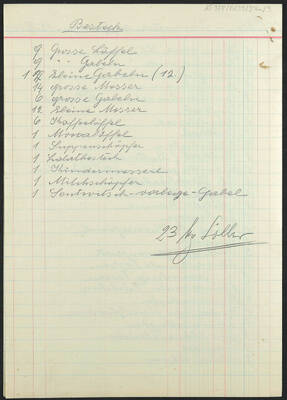 Besteck
9 Grosse Löffel
9 " Gabeln
12 kleine Gabeln (12.)
14 grosse Messer
6 grosse Gabeln
12 kleine Messer
6 Kaffeelöffel
1 Mokkalöffel
1 Suppenschöpfer
1 Salatbesteck
1 Kindermesserl
1 Milchschöpfer
1 vorlege-Gabel
23